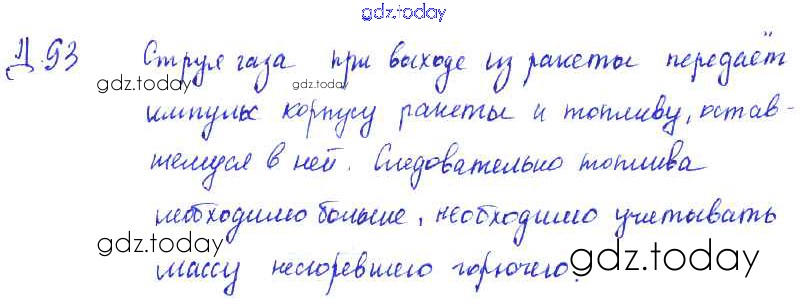 gdz.today
Д.93 Струя газа при выходе из ракеты передаёт
gdz.today gdz.today
импульс корпусу ракеты и топливу, остав-
шемуся в ней. Следовательно топлива
необходимо больше, необходимо учитывать
gdz.today gdz.today
массу несгоревшего горючего.